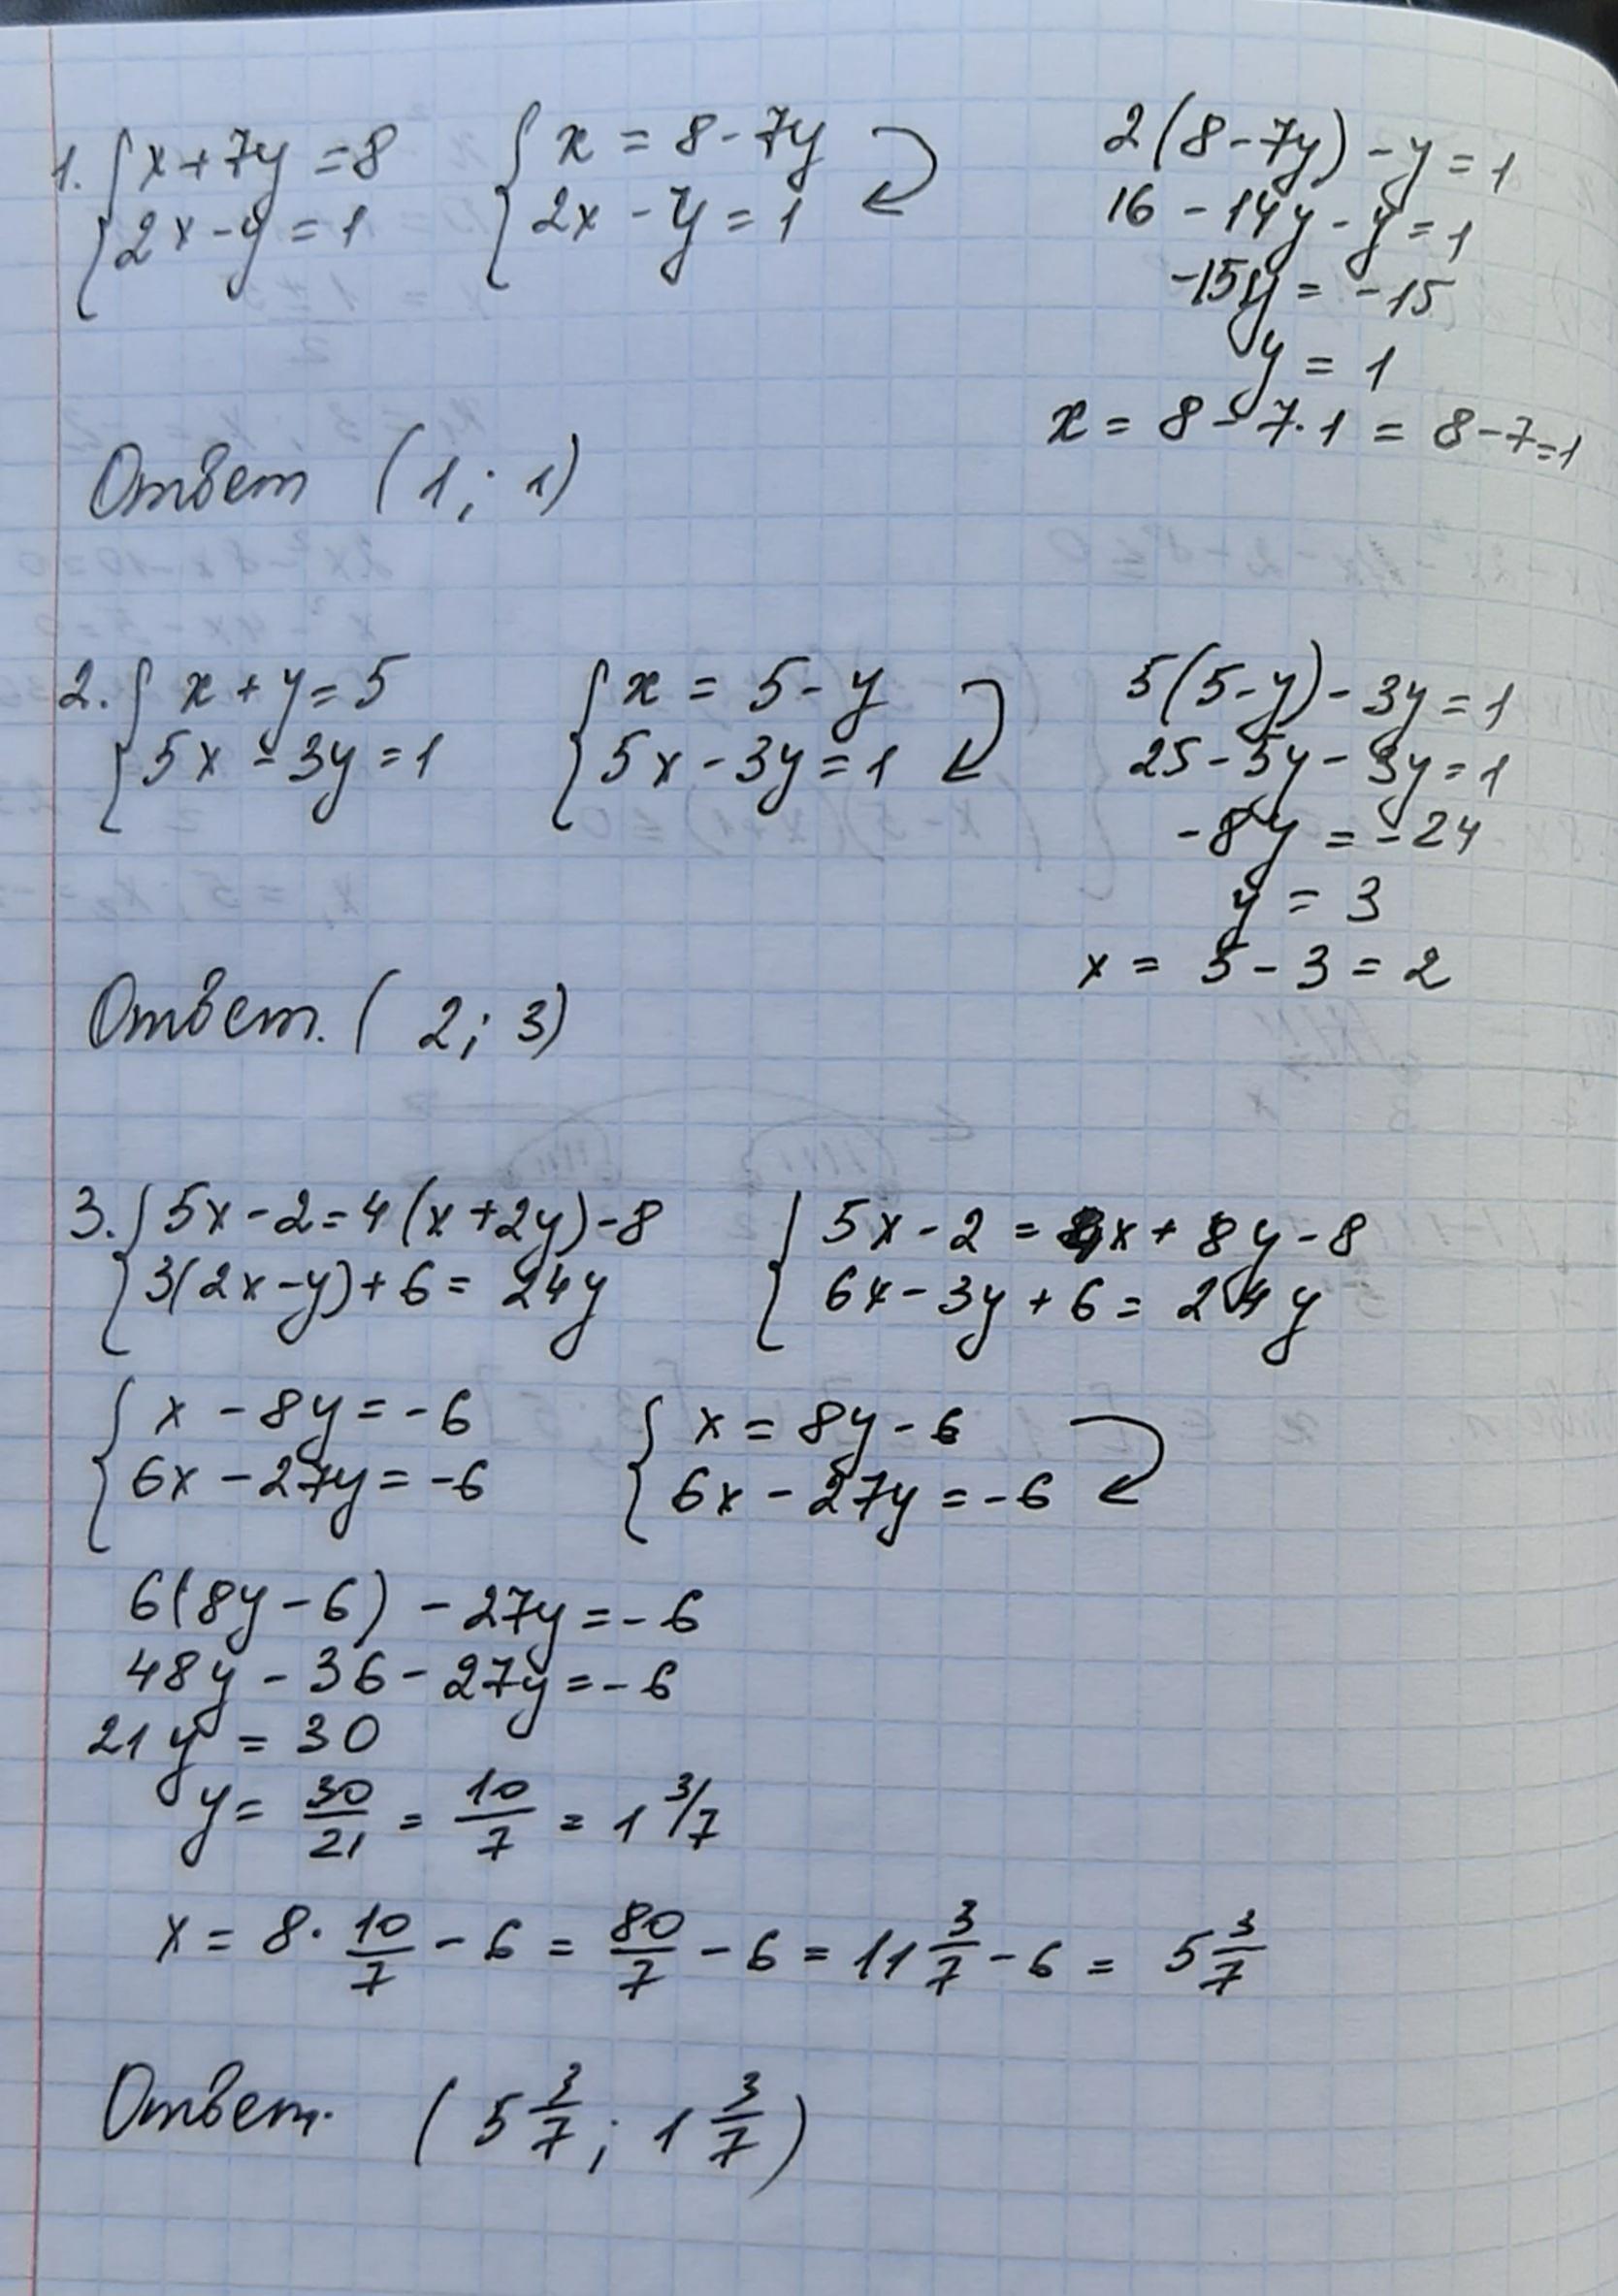 1. { x + 7y = 8   { x = 8 - 7y   2(8 - 7y) - y = 1
2x - y = 1   2x - y = 1   16 - 14y - y = 1
-15y = -15
y = 1
x = 8 - 7·1 = 8 - 7 = 1
Ответ (1; 1)
2. { x + y = 5   { x = 5 - y   5(5 - y) - 3y = 1
5x - 3y = 1   5x - 3y = 1   25 - 5y - 3y = 1
-8y = -24
y = 3
x = 5 - 3 = 2
Ответ. (2; 3)
3. { 5x - 2 = 4(x + 2y) - 8   { 5x - 2 = 4x + 8y - 8
3(2x - y) + 6 = 24y   6x - 3y + 6 = 24y
{ x - 8y = -6   { x = 8y - 6
6x - 27y = -6   6x - 27y = -6
6(8y - 6) - 27y = -6
48y - 36 - 27y = -6
21y = 30
y = 30/21 = 10/7 = 1 3/7
x = 8 · 10/7 - 6 = 80/7 - 6 = 11 3/7 - 6 = 5 3/7
Ответ. (5 3/7; 1 3/7)